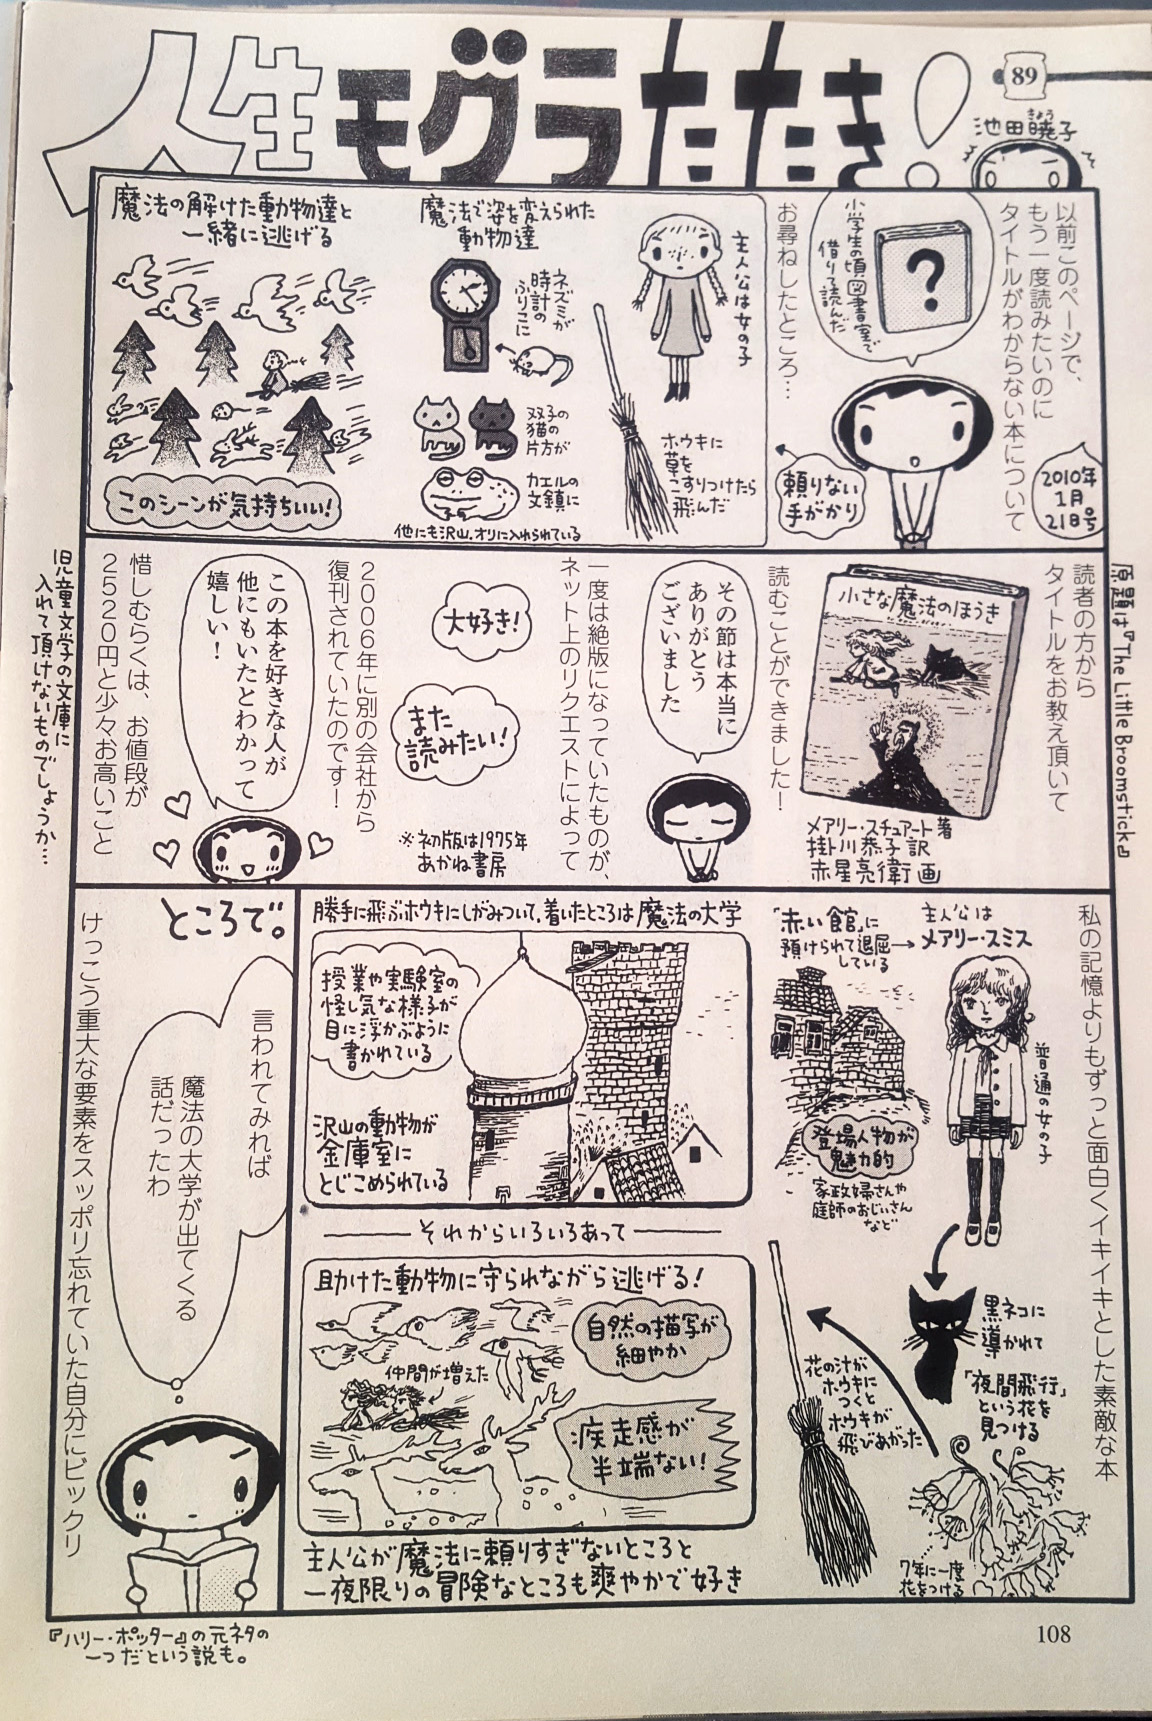 人生モグラたたき!
89
池田暁子
きょう
以前このページで、
もう一度読みたいのに
タイトルがわからない本について
2010年
1月
21日号
小学生の頃図書室で
借りて読んだ
?
お尋ねしたところ…
頼りない
手がかり
主人公は女の子
ホウキに
草を
こすりつけたら
飛んだ
魔法で姿を変えられた
動物達
ネズミが
時計の
ふりこに
双子の
猫の
片方が
カエルの
文鎮に
他にも沢山、オリに入れられている
魔法の解けた動物達と
一緒に逃げる
このシーンが気持ちいい!
原題は『The Little Broomstick』
読者の方から
タイトルをお教え頂いて
小さな魔法のほうき
メアリー・スチュアート著
掛川恭子訳
赤星亮衛画
読むことができました!
その節は本当に
ありがとう
ございました
一度は絶版になっていたものが、
ネット上のリクエストによって
大好き!
また
読みたい!
※初版は1975年
あかね書房
2006年に別の会社から
復刊されていたのです!
この本を好きな人が
他にもいたとわかって
嬉しい!
惜しむらくは、お値段が
2520円と少々お高いこと
児童文学の文庫に
入れて頂けないものでしょうか…
私の記憶よりもずっと面白くイキイキとした素敵な本
主人公は
メアリー・スミス
普通の女の子
「赤い館」に
預けられて退屈
している
登場人物が
魅力的
家政婦さんや
庭師のおじいさん
など
黒ネコに
導かれて
「夜間飛行」
という花を
見つける
7年に一度
花をつける
花の汁が
ホウキに
つくと
ホウキが
飛びあがった
勝手に飛ぶホウキにしがみついて、着いたところは魔法の大学
授業や実験室の
怪し気な様子が
目に浮かぶように
書かれている
沢山の動物が
金庫室に
とじこめられている
それからいろいろあって
助けた動物に守られながら逃げる!
自然の描写が
細やか
仲間が増えた
疾走感が
半端ない!
主人公が魔法に頼りすぎないところと
一夜限りの冒険なところも爽やかで好き
ところで。
言われてみれば
魔法の大学が出てくる
話だったわ
けっこう重大な要素をスッポリ忘れていた自分にビックリ
『ハリー・ポッター』の元ネタの
一つだという説も。
108